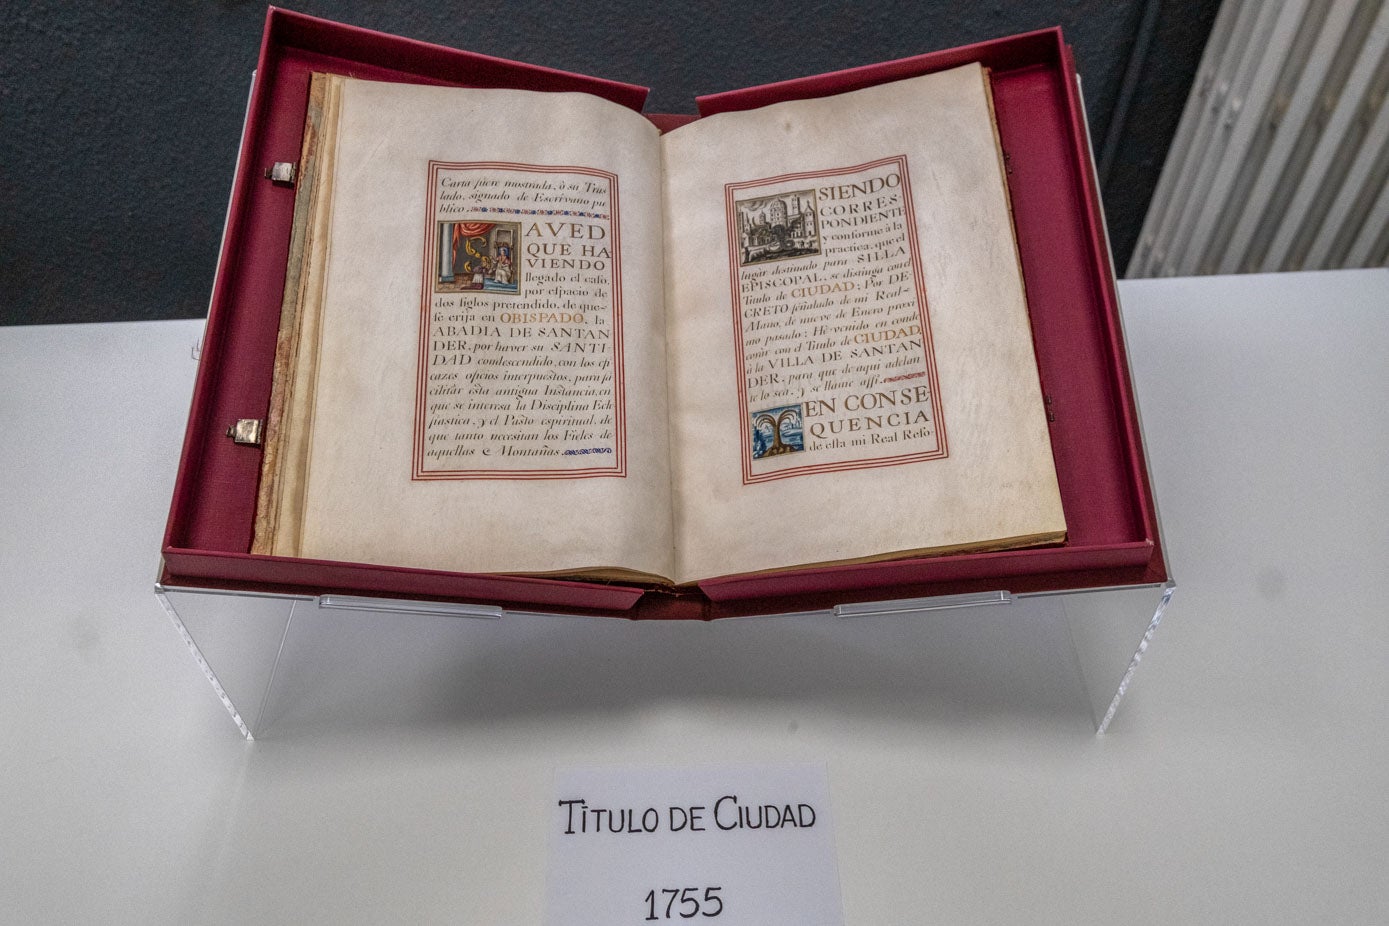 Carta fuere mostrada, ò su Tras
lado, signado de Escrivano pu
blico.
AVED
QUE HA
VIENDO
llegado el caso,
por espacio de
dos siglos pretendido, de que
se erija en OBISPADO, la
ABADIA DE SANTAN
DER, por haver su SANTI-
DAD condescendido, con los efi
cazes oficios interpuestos, para fa
cilitar esta antigua Instancia, en
que se interesa la Disciplina Ecle
siastica, y el Pasto espiritual, de
que tanto necesitan los Fieles de
aquellas Montañas.
SIENDO
CORRES
PONDIENTE
y conforme à la
practica, que el
lugàr destinado para SILLA
EPISCOPAL, se distinga con el
Titulo de CIUDAD; Por DE-
CRETO señalado de mi Real
Mano, de nueve de Enero proxi
mo pasado; Hè venido en conde
coràr con el Titulo de CIUDAD,
à la VILLA DE SANTAN
DER, para que de aqui adelan
te lo sea, y se llame assi.
EN CONSE
QUENCIA
de esta mi Real Reso-
TÍTULO DE CIUDAD
1755